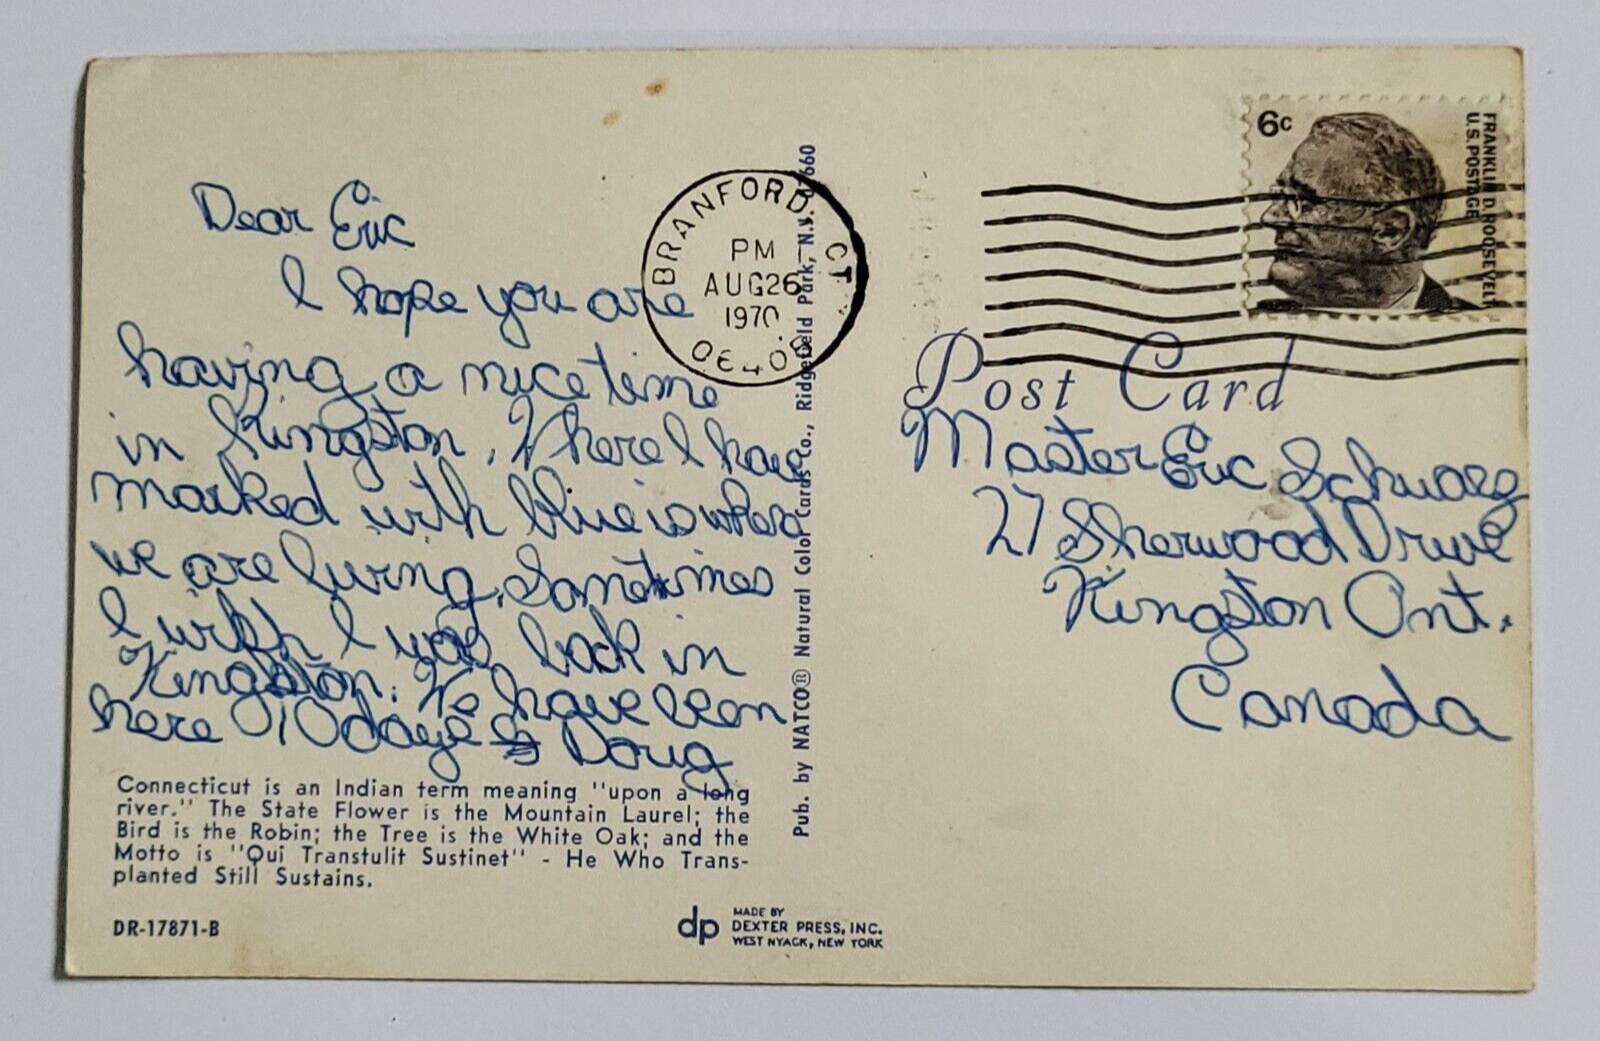 Dear Eric
I hope you are
having a nice time
in Kingston. Where I have
marked with blue is where
we are living. Sometimes
I wish I was back in
Kingston. We have been
here 10 days Doug
Connecticut is an Indian term meaning "upon a long
river." The State Flower is the Mountain Laurel; the
Bird is the Robin; the Tree is the White Oak; and the
Motto is "Qui Transtulit Sustinet" - He Who Trans-
planted Still Sustains.
DR-17871-B
dp
MADE BY
DEXTER PRESS, INC.
WEST NYACK, NEW YORK
Pub. by NATCO® Natural Color Cards Co., Ridgefield Park, N.J. 07660
BRANFORD CT
PM
AUG26
1970
06405
6c
FRANKLIN D. ROOSEVELT
U.S. POSTAGE
Post Card
Master Eric Schwarz
27 Sherwood Drive
Kingston Ont.
Canada